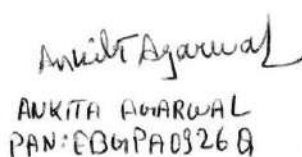 Ankita Agarwal
ANKITA AGARWAL
PAN: EBGPA0926Q